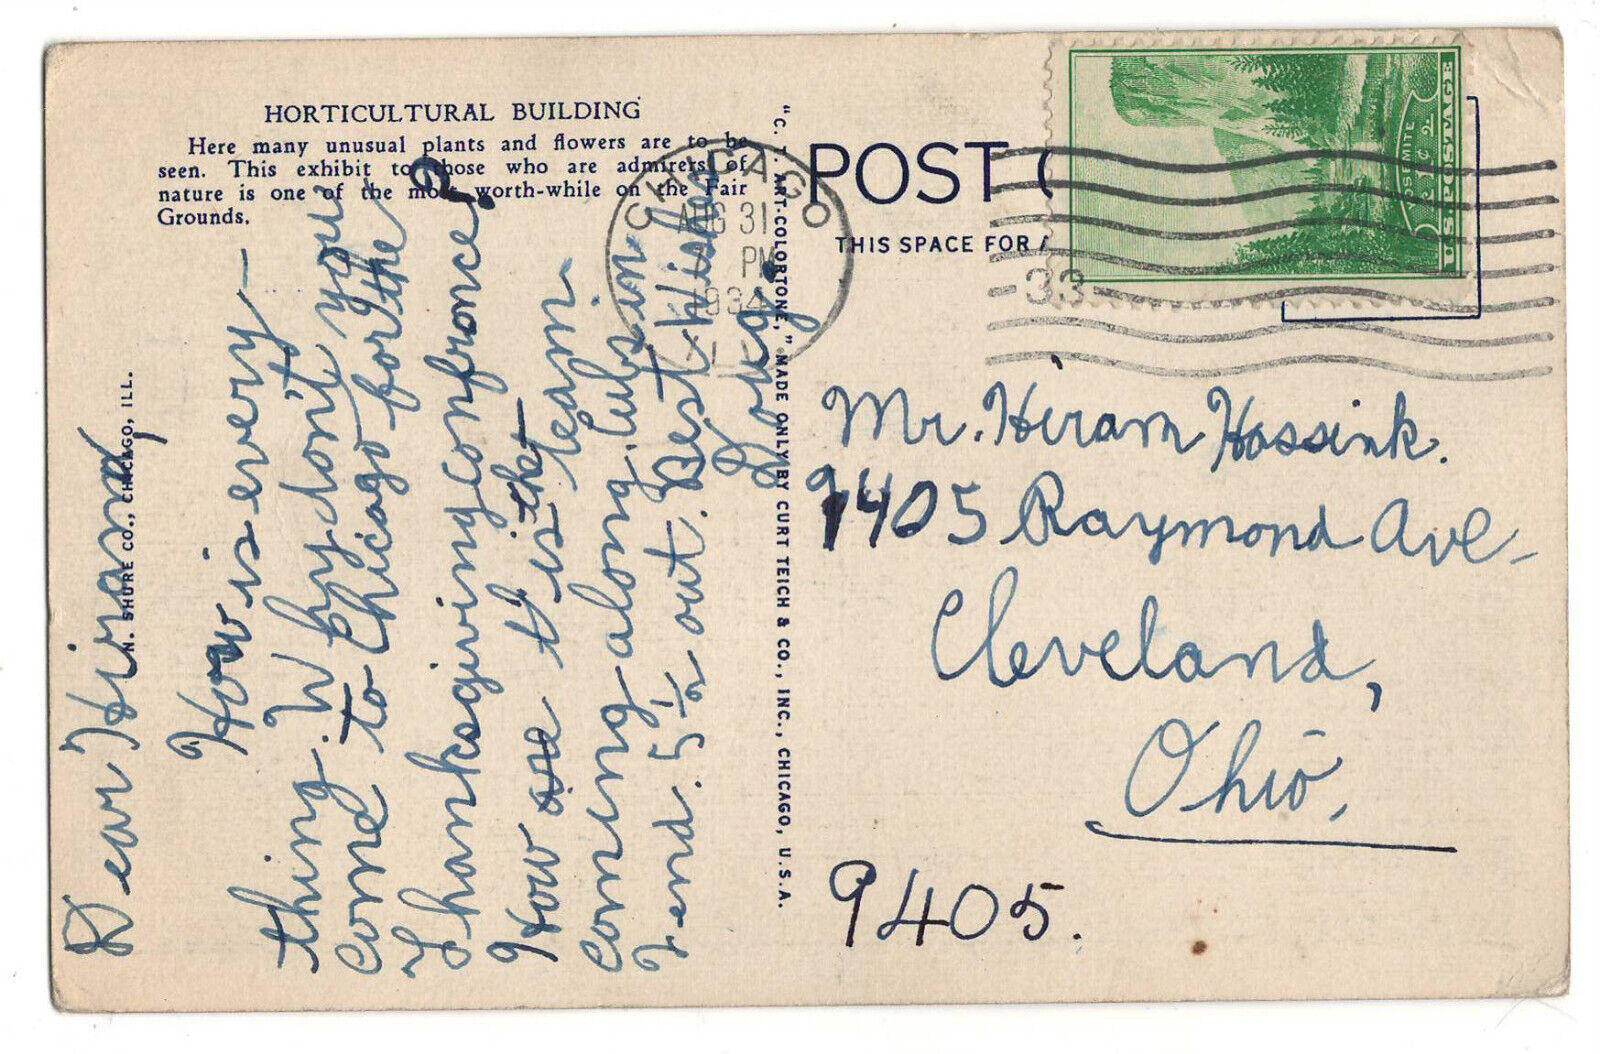 HORTICULTURAL BUILDING
Here many unusual plants and flowers are to be
seen. This exhibit to those who are admirers of
nature is one of the most worth-while on the Fair
Grounds.
N. SHURE CO., CHICAGO, ILL.
Dear Hiram,
How is every-
thing. Why don't you
come to Chicago for the
Thanksgiving confronce?
How are the
t is team
coming along. Cubs in
2end. 5½ out. Best Wishes
"C. T. ART-COLORTONE," MADE ONLY BY CURT TEICH & CO., INC., CHICAGO, U.S.A.
POST C
THIS SPACE FOR A
CHICAGO
AUG 31
PM
1934
ILL
-33-
YOSEMITE
2¢ 2
U.S. POSTAGE
Mr. Hiram Hossink.
9405 Raymond Ave-
Cleveland,
Ohio.
9405.